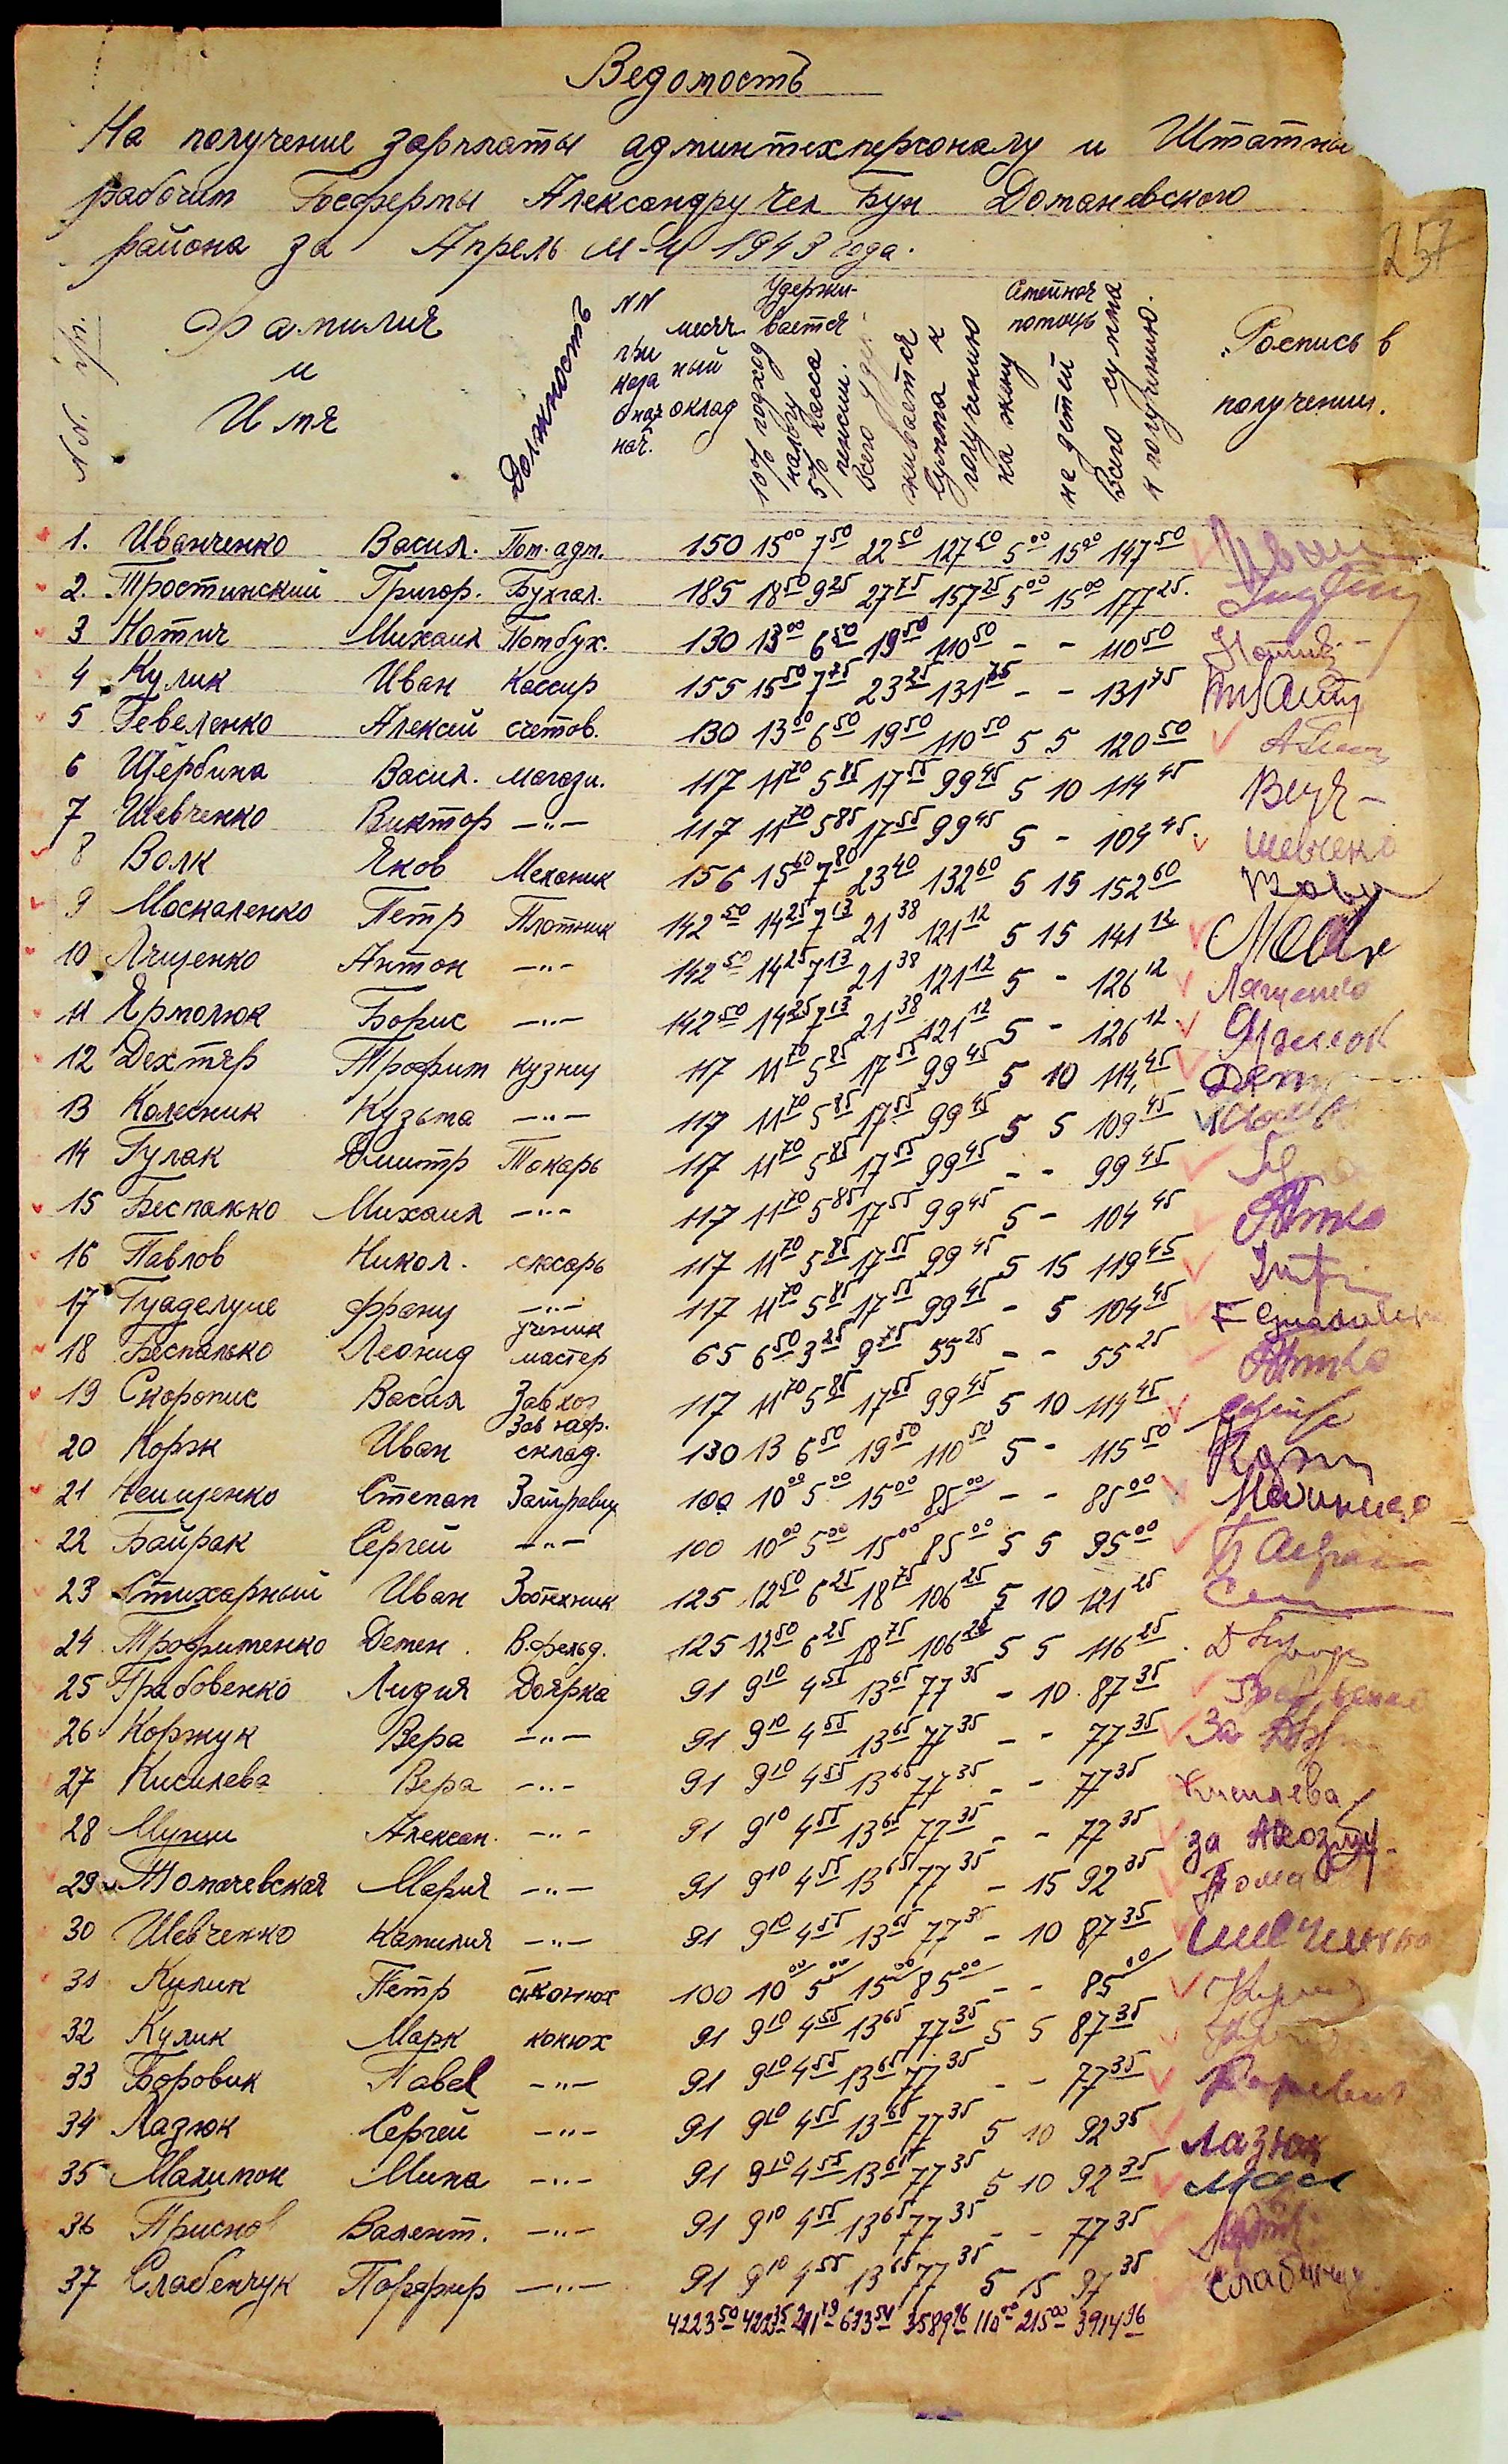 Ведомость
На получение зарплаты админтехперсоналу и Штатны
рабочим Госфермы Александру Чел Бун Доманевского
района за Апрель м-ц 1943 года.
257
NN п/п.
Фамилия
и
Имя
Должность
NN
месяч ный оклад
Удержи-
вается
10% подоход
налогу
5% касса
пенсии.
Всего удер
живается
Сумма к
получению
Семейная
помощь
на жену
на детей
Всего сумма
к получению.
Роспись в
получении.
1. Иванченко Васил. Пом. адм. 150 15 00 7 50 22 50 127 50 5 00 15 00 147 50
2. Тростинский Григор. Бухгал. 185 18 50 9 25 27 75 157 25 5 00 15 00 177 25.
3 Нотич Михаил Помбух. 130 13 00 6 50 19 50 110 50 - - 110 50
4 Кулик Иван Кассир 155 15 50 7 75 23 25 131 75 - - 131 75
5 Гевеленко Алексей счетов. 130 13 00 6 50 19 50 110 50 5 5 120 50
6 Щербина Васил. магази. 117 11 70 5 85 17 55 99 45 5 10 114 45
7 Шевченко Виктор —"— 117 11 70 5 85 17 55 99 45 5 - 104 45. Шевченко
8 Волк Яков Механик 156 15 60 7 80 23 40 132 60 5 15 152 60
9 Москаленко Петр Плотник 142 50 14 25 7 13 21 38 121 12 5 15 141 12
10 Лященко Антон —"— 142 50 14 25 7 13 21 38 121 12 5 - 126 12 Лященко
11 Ярмолюк Борис —"— 142 50 14 25 7 13 21 38 121 12 5 - 126 12
12 Дехтяр Трофим кузнец 117 11 70 5 85 17 55 99 45 5 10 114 45
13 Колесник Кузьма —"— 117 11 70 5 85 17 55 99 45 5 5 109 45
14 Гулак Дмитр Токарь 117 11 70 5 85 17 55 99 45 - - 99 45
15 Беспалько Михаил —"— 117 11 70 5 85 17 55 99 45 5 - 104 45
16 Павлов Никол. слесарь 117 11 70 5 85 17 55 99 45 5 15 119 45
17 Гуаделупе Франц —"— 117 11 70 5 85 17 55 99 45 - 5 104 45
18 Беспалько Леонид ученик мастер 65 6 50 3 25 9 75 55 25 - - 55 25
19 Скоропис Васил Завхоз 117 11 70 5 85 17 55 99 45 5 10 114 45
20 Корж Иван Зав наф. склад. 130 13 6 50 19 50 110 50 5 - 115 50
21 Степан 100 10 00 5 00 15 00 85 00 - - 85 00
22 Байрак Сергей —"— 100 10 00 5 00 15 00 85 00 5 5 95 00
23 Стихарный Иван Зоотехник 125 12 50 6 25 18 75 106 25 5 10 121 25
24 Трофименко Демен. В.фельд. 125 12 50 6 25 18 75 106 25 5 5 116 25
25 Грабовенко Лидия Доярка 91 9 10 4 55 13 65 77 35 - 10 87 35
26 Коржук Вера —"— 91 9 10 4 55 13 65 77 35 - - 77 35 За
27 Кисилева Вера —"— 91 9 10 4 55 13 65 77 35 - - 77 35 Киселева
28 Алексан. —"— 91 9 10 4 55 13 65 77 35 - - 77 35 за
29 Томачевская Мария —"— 91 9 10 4 55 13 65 77 35 - 15 92 35
30 Шевченко Камилия —"— 91 9 10 4 55 13 65 77 35 - 10 87 35 Шевченко
31 Кулик Петр ст.конюх 100 10 00 5 00 15 00 85 00 - - 85 00
32 Кулик Марк конюх 91 9 10 4 55 13 65 77 35 5 5 87 35
33 Боровик Павел —"— 91 9 10 4 55 13 65 77 35 - - 77 35
34 Лазюк Сергей —"— 91 9 10 4 55 13 65 77 35 5 10 92 35 Лазюк
35 Малимон Мина —"— 91 9 10 4 55 13 65 77 35 5 10 92 35
36 Приснов Валент. —"— 91 9 10 4 55 13 65 77 35 - - 77 35
37 Слабенчук Порфир —"— 91 9 10 4 55 13 65 77 35 5 15 97 35
4223 50 422 35 211 19 633 54 3589 96 110 00 215 00 3914 96